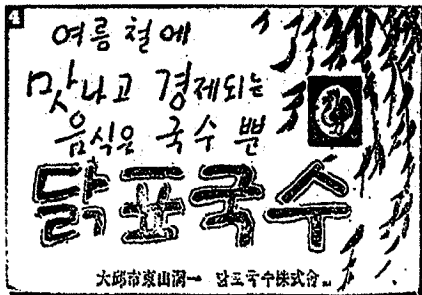 4
여름철에
맛나고 경제되는
음식은 국수 뿐
닭표국수
大邱市東山洞一 닭표국수株式会